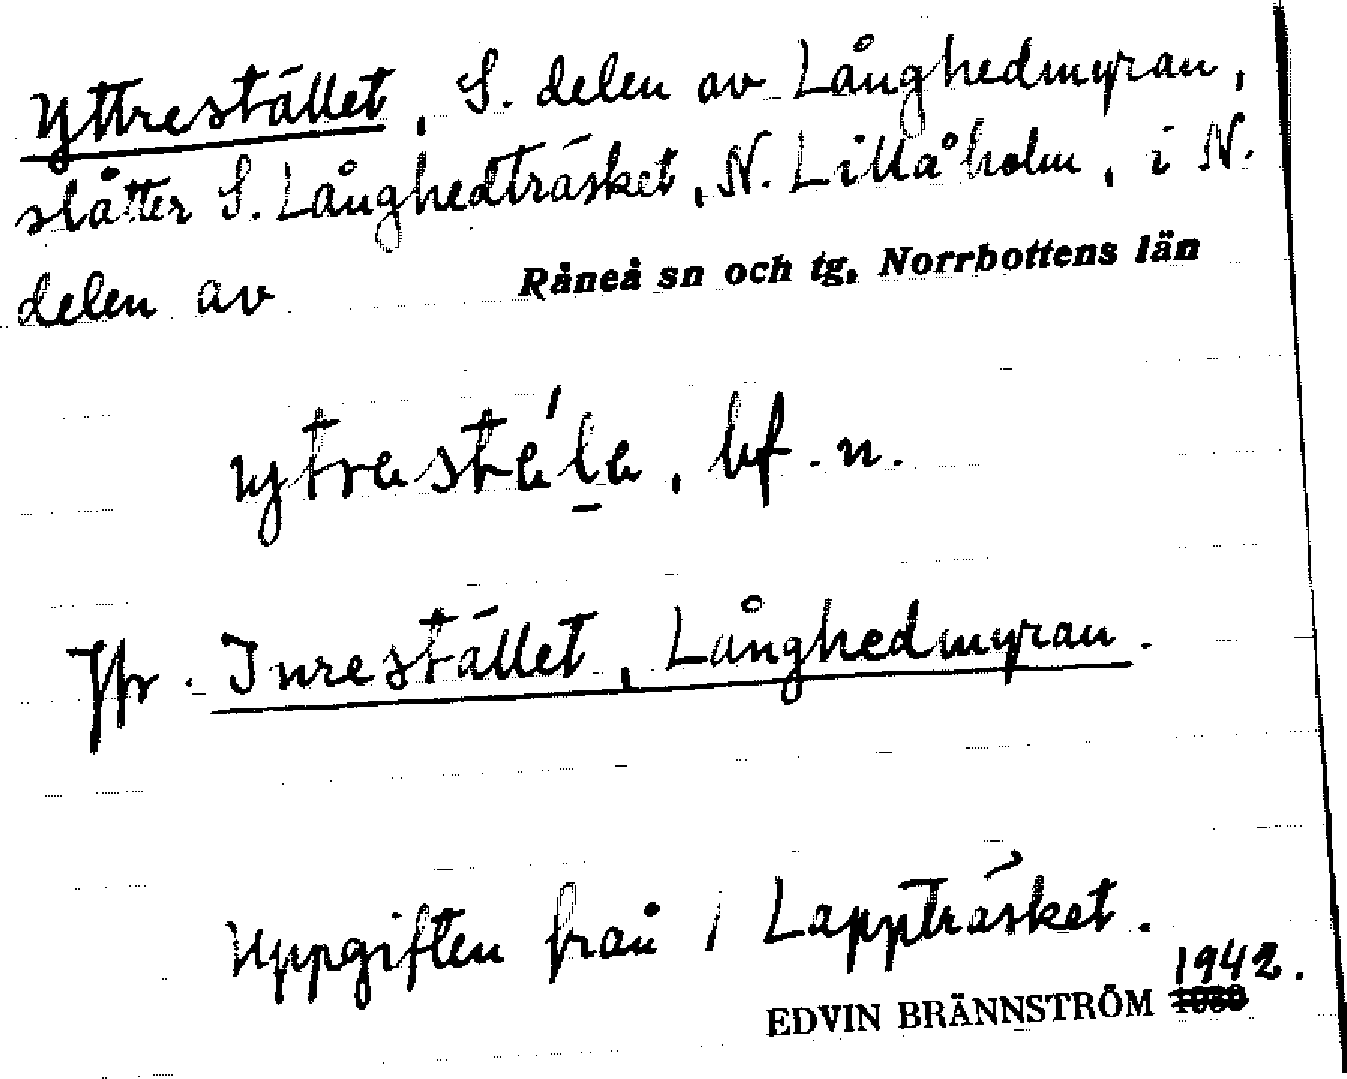 Yttrestället, S. delen av Långhedmyran,
slåtter S. Långhedträsket, N. Lillåholm, i N.
delen av Råneå sn och tg, Norrbottens län
ytrestéle, bf. n.
Jfr. Inrestället, Långhedmyran.
Uppgiften från i Lappträsket.
1942.
EDVIN BRÄNNSTRÖM